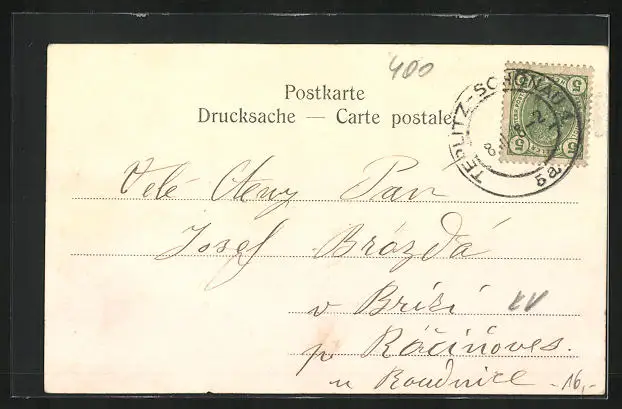 400
Postkarte
Drucksache — Carte postale
TEPLITZ-SCHÖNAU 1
5a
5 5
5 5
Velé Cteny Pan
Josef Brózdá
v Bríží
p Ráčinoves.
u Roudnice
-16,-